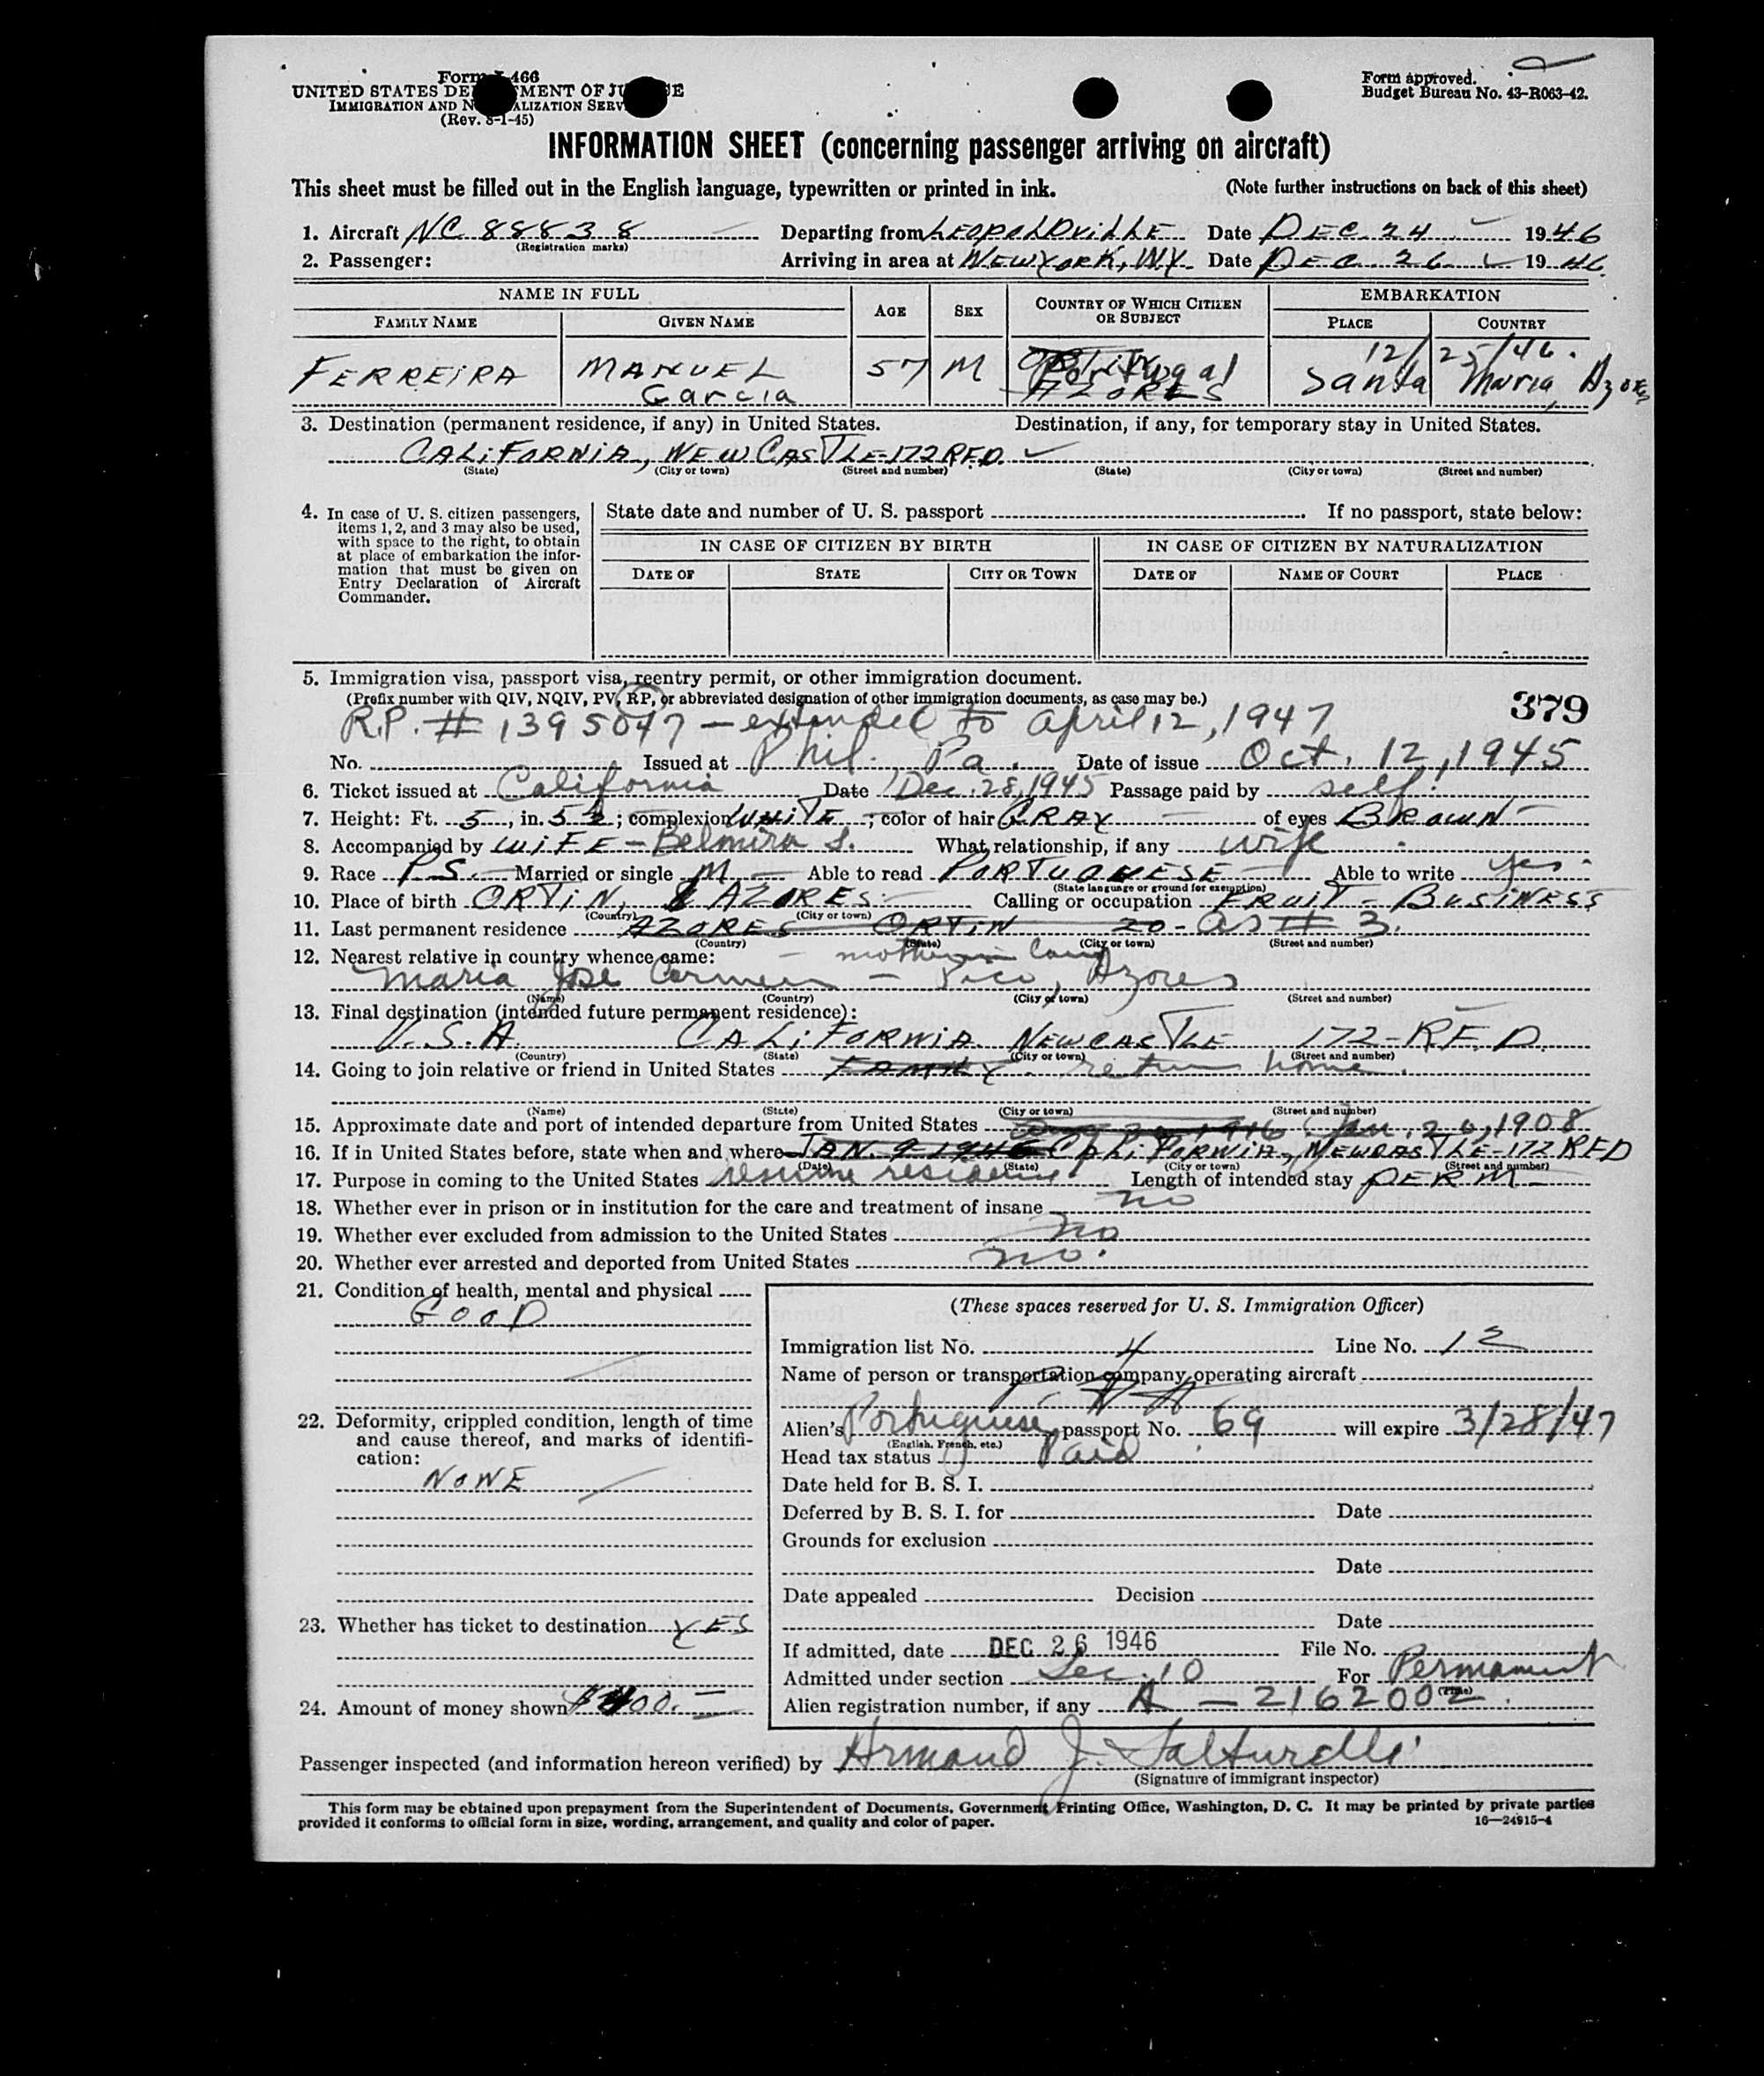 Form I-466
UNITED STATES DEPARTMENT OF JUSTICE
IMMIGRATION AND NATURALIZATION SERVICE
(Rev. 8-1-45)
Form approved.
Budget Bureau No. 43-R063-42.
INFORMATION SHEET (concerning passenger arriving on aircraft)
This sheet must be filled out in the English language, typewritten or printed in ink. (Note further instructions on back of this sheet)
1. Aircraft NC 88838 Departing from LEOPOLDVILLE Date DEC. 24 1946
(Registration marks)
2. Passenger: Arriving in area at NEW YORK, N.Y. Date DEC 26 1946
NAME IN FULL AGE SEX COUNTRY OF WHICH CITIZEN OR SUBJECT EMBARKATION
FAMILY NAME GIVEN NAME PLACE COUNTRY
12/25/46.
FERREIRA MANUEL 57 M Portugal Santa Maria, Azores
Garcia AZORES
3. Destination (permanent residence, if any) in United States. Destination, if any, for temporary stay in United States.
CALiFORNIA, NEWCASTLE-172 RFD.
(State) (City or town) (Street and number) (State) (City or town) (Street and number)
4. In case of U. S. citizen passengers, items 1, 2, and 3 may also be used, with space to the right, to obtain at place of embarkation the information that must be given on Entry Declaration of Aircraft Commander.
State date and number of U. S. passport If no passport, state below:
IN CASE OF CITIZEN BY BIRTH IN CASE OF CITIZEN BY NATURALIZATION
DATE OF STATE CITY OR TOWN DATE OF NAME OF COURT PLACE
5. Immigration visa, passport visa, reentry permit, or other immigration document.
(Prefix number with QIV, NQIV, PV, RP, or abbreviated designation of other immigration documents, as case may be.)
379
R.P. # 1395047 — extended to April 12, 1947
No. Issued at Phil. Pa. Date of issue Oct. 12, 1945
6. Ticket issued at California Date Dec. 28, 1945 Passage paid by self
7. Height: Ft. 5, in. 5½; complexion WHITE; color of hair GRAY of eyes BROWN
8. Accompanied by WIFE - Belmira S. What relationship, if any wife
9. Race PS. Married or single M Able to read PORTUGUESE Able to write yes
(State language or ground for exemption)
10. Place of birth ORTiN, AZORES Calling or occupation FRUIT - BUSINESS
(Country) (City or town)
11. Last permanent residence AZORES ORTiN 20- as # 3.
(Country) (State) (City or town) (Street and number)
12. Nearest relative in country whence came: - mother in law
Maria Jose Carmen - Pico, Azores
(Name) (Country) (City or town) (Street and number)
13. Final destination (intended future permanent residence):
U.S.A. CALiFORNiA NEWCASTLE 172-RF.D.
(Country) (State) (City or town) (Street and number)
14. Going to join relative or friend in United States FAMILY return home.
(Name) (State) (City or town) (Street and number)
15. Approximate date and port of intended departure from United States Jan. 20, 1908
16. If in United States before, state when and where JAN. 9-1946 CALiFORNiA, NEWCASTLE-172 RFD
(Date) (State) (City or town) (Street and number)
17. Purpose in coming to the United States resume residence Length of intended stay PERM
18. Whether ever in prison or in institution for the care and treatment of insane no
19. Whether ever excluded from admission to the United States no
20. Whether ever arrested and deported from United States no.
21. Condition of health, mental and physical
GOOD
22. Deformity, crippled condition, length of time and cause thereof, and marks of identification:
NONE
23. Whether has ticket to destination YES
24. Amount of money shown
(These spaces reserved for U. S. Immigration Officer)
Immigration list No. 4 Line No. 12
Name of person or transportation company operating aircraft
P.A.A.
Alien's Portuguese passport No. 69 will expire 3/28/47
(English, French, etc.)
Head tax status Paid
Date held for B. S. I.
Deferred by B. S. I. for Date
Grounds for exclusion
Date
Date appealed Decision
Date
If admitted, date DEC 26 1946 File No.
Admitted under section Sec. 10 For Permanent
(Time)
Alien registration number, if any A-2162002
Passenger inspected (and information hereon verified) by Armand J. Salturelli
(Signature of immigrant inspector)
This form may be obtained upon prepayment from the Superintendent of Documents, Government Printing Office, Washington, D. C. It may be printed by private parties
provided it conforms to official form in size, wording, arrangement, and quality and color of paper. 16—24915-4